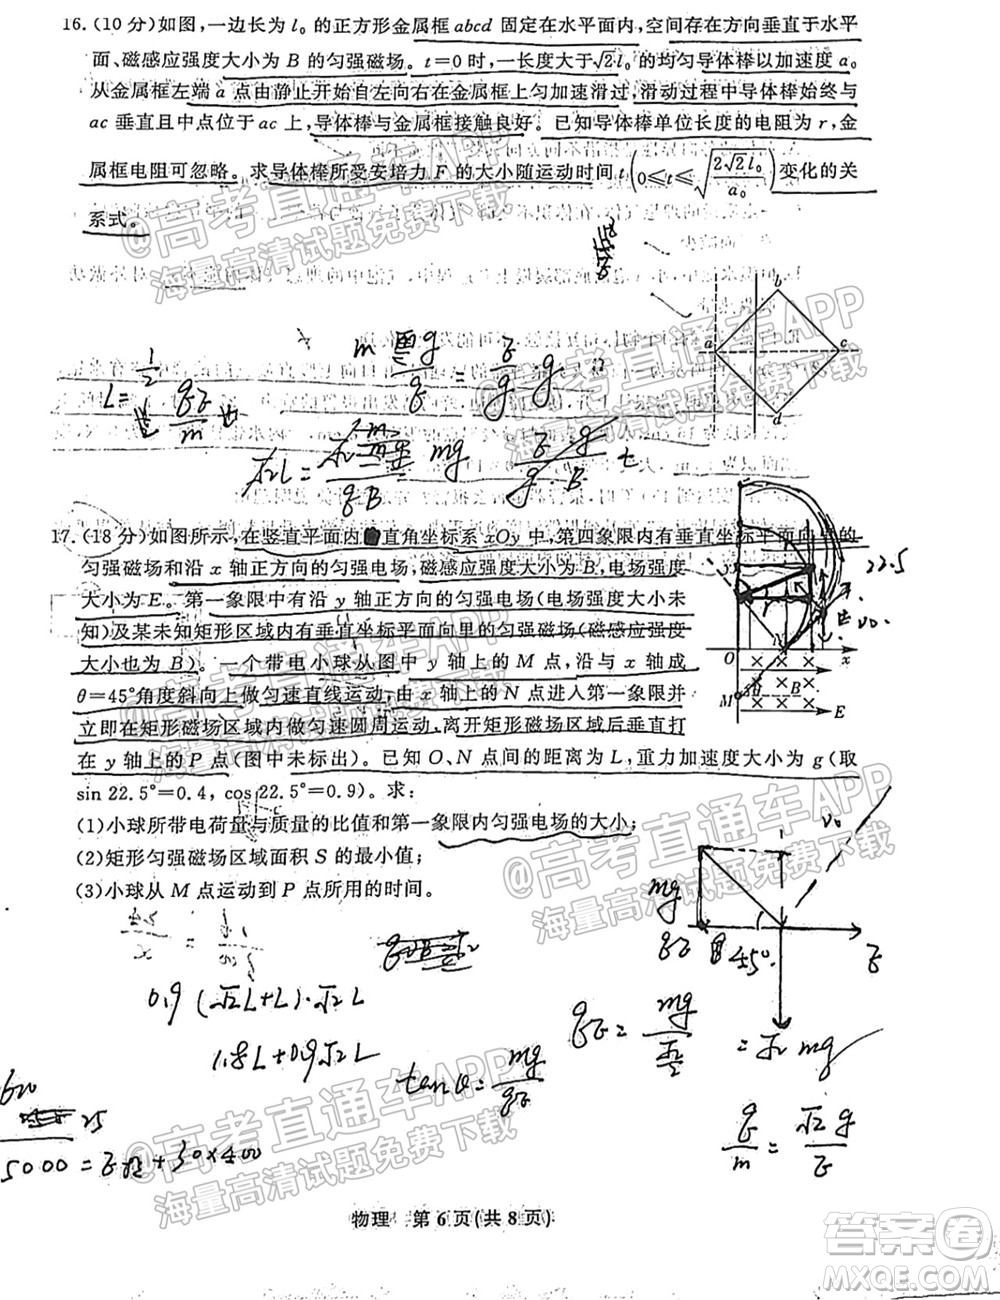 16.(10 分)如图,一边长为 l₀ 的正方形金属框 abcd 固定在水平面内,空间存在方向垂直于水平
面、磁感应强度大小为 B 的匀强磁场。t=0 时,一长度大于√2 l₀ 的均匀导体棒以加速度 a₀
从金属框左端 a 点由静止开始自左向右在金属框上匀加速滑过,滑动过程中导体棒始终与
ac 垂直且中点位于 ac 上,导体棒与金属框接触良好。已知导体棒单位长度的电阻为 r,金
属框电阻可忽略。求导体棒所受安培力 F 的大小随运动时间 t(0≤t≤√(2√2 l₀/a₀))变化的关
系式。
b
a
c
d
17.(18 分)如图所示,在竖直平面内直角坐标系 xOy 中,第四象限内有垂直坐标平面向里的
匀强磁场和沿 x 轴正方向的匀强电场,磁感应强度大小为 B,电场强度
大小为 E。第一象限中有沿 y 轴正方向的匀强电场(电场强度大小未
知)及某未知矩形区域内有垂直坐标平面向里的匀强磁场(磁感应强度
大小也为 B)。一个带电小球从图中 y 轴上的 M 点,沿与 x 轴成
θ=45°角度斜向上做匀速直线运动,由 x 轴上的 N 点进入第一象限并
立即在矩形磁场区域内做匀速圆周运动,离开矩形磁场区域后垂直打
在 y 轴上的 P 点(图中未标出)。已知 O、N 点间的距离为 L,重力加速度大小为 g(取
sin 22.5°=0.4, cos 22.5°=0.9)。求:
(1)小球所带电荷量与质量的比值和第一象限内匀强电场的大小;
(2)矩形匀强磁场区域面积 S 的最小值;
(3)小球从 M 点运动到 P 点所用的时间。
O
N
x
M
θ
B
E
22.5
0.9 (√2L+L)·√2L
1.8L+0.9√2L
tanθ = mg/qE
mg
qE
45°
E
v₀
qE = mg/(√2/2) = √2 mg
q/m = √2 g/E
物理 第 6 页(共 8 页)
@高考直通车APP
海量高清试题免费下载
@高考直通车APP
海量高清试题免费下载
@高考直通车APP
海量高清试题免费下载
@高考直通车APP
海量高清试题免费下载
答案圈
MXQE.COM